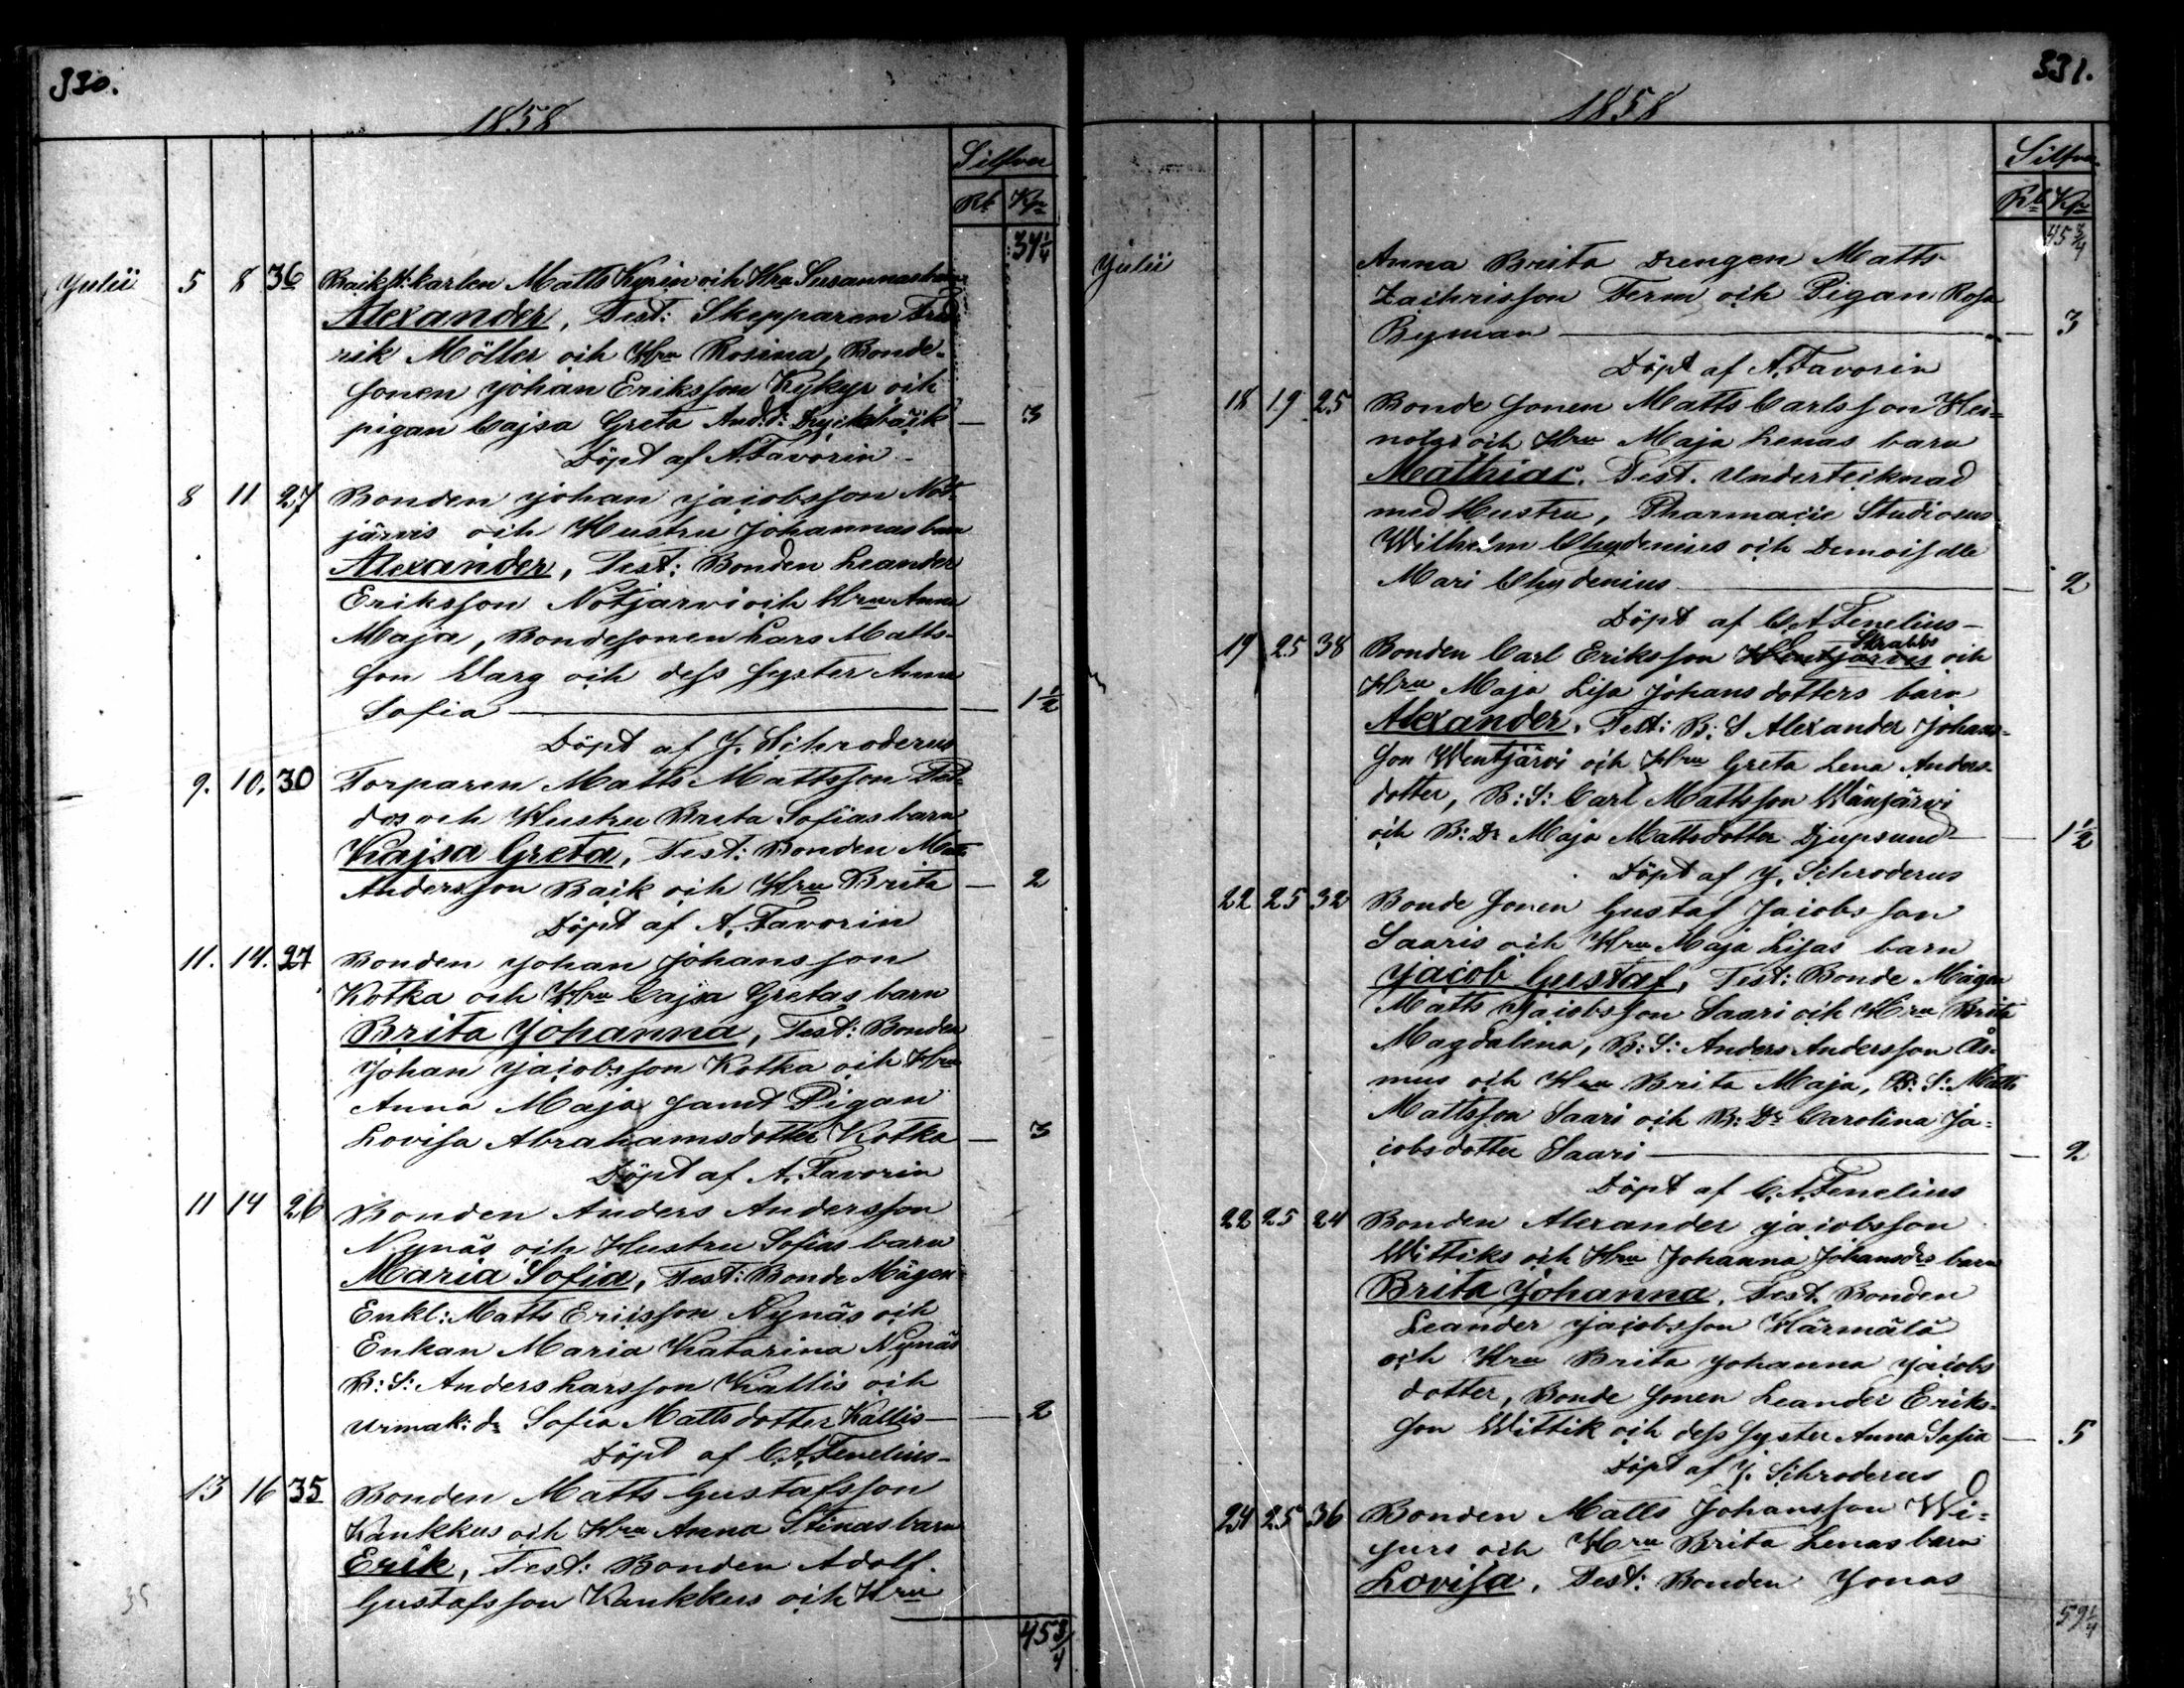 330.
1858
Silfver
Rb Kp
34 1/4
Julii 5 8 36 Matts Kyrin och Hru Susannas barn
Alexander, Test: Skepparen Fred
rik Möller och Hru Rosina, Bonde-
sonen Johan Eriksson Kykyr och
pigan Cajsa Greta And:d: — 3
Döpt af A. Favorin
8 11 27 Bonden Johan Jacobsson Not-
järvis och Hustru Johannas barn
Alexander, Test: Bonden Leander
Eriksson Notjärvi och Hru Anna
Maja, Bondesonen Lars Matts-
son Warg och dess syster Anna
Sofia — 1 1/2
Döpt af J. Schroderus
9. 10. 30 Torparen Matts Mattsson
och Hustru Brita Sofias barn
Kajsa Greta, Test: Bonden Matts
Andersson Baik och Hru Brita — 2
Döpt af A. Favorin
11. 14. 27 Bonden Johan Johansson
Kotka och Hru Cajsa Gretas barn
Brita Johanna, Test: Bonden
Johan Jacobsson Kotka och Hru
Anna Maja samt Pigan
Lovisa Abrahamsdotter Kotka — 3
Döpt af A. Favorin
11 14 26 Bonden Anders Andersson
Nynäs och Hustru Sofias barn
Maria Sofia, Test: Bonde Mågen
Enkl: Matts Ericsson Nynäs och
Enkan Maria Katarina Nynäs
B: S: Anders Larsson Kallis och
Urmak: dr Sofia Mattsdotter Kallis — 2
Döpt af C. A. Fenelius
13 16 35 Bonden Matts Gustafsson
Kankkus och Hru Anna Stinas barn
Erik, Test: Bonden Adolf
Gustafsson Kankkus och Hru
35
45 3/4
331.
1858
Silfver
Rb Kp
45 3/4
Julii Anna Brita Drengen Matts
Zachrisson Ferm och Pigan Rosa
Byman — 3
Döpt af A. Favorin
18 19 25 Bonde sonen Matts Carlsson Hei-
nolas och Hru Maja Lenas barn
Mathias. Test. Underteiknad
med Hustru, Pharmacie Studiosus
Wilhelm Chydenius och Demoiselle
Mari Chydenius — 2
Döpt af C. A. Fenelius
Skrabbs
19 25 38 Bonden Carl Eriksson Wentjärvis och
Hru Maja Lisa Johansdotters barn
Alexander, Test: B: S Alexander Johans-
son Wentjärvi och Hru Greta Lena Anders-
dotter, B: S: Carl Mattsson Wänjärvi
och B: Dr Maja Mattsdotter Djupsund — 1 1/2
Döpt af J. Schroderus
22 25 32 Bonde sonen Gustaf Jacobsson
Saaris och Hru Maja Lisas barn
Jacob Gustaf, Test: Bonde Mågen
Matts Jacobsson Saari och Hru Brita
Magdalena, B: S: Anders Andersson Ås-
mus och Hru Brita Maja, B: S: Matts
Mattsson Saari och B: Dr Carolina Ja-
cobsdotter Saari — 2
Döpt af C. A. Fenelius
22 25 24 Bonden Alexander Jacobsson
Wittiks och Hru Johanna Johansdrs barn
Brita Johanna, Test. Bonden
Leander Jacobsson Härmälä
och Hru Brita Johanna Jacobs
dotter, Bonde sonen Leander Eriks-
son Wittik och dess syster Anna Sofia — 5
Döpt af J. Schroderus
24 25 36 Bonden Matts Johansson Wi-
och Hru Brita Lenas barn
Lovisa. Test: Bonden Jonas
59 1/4